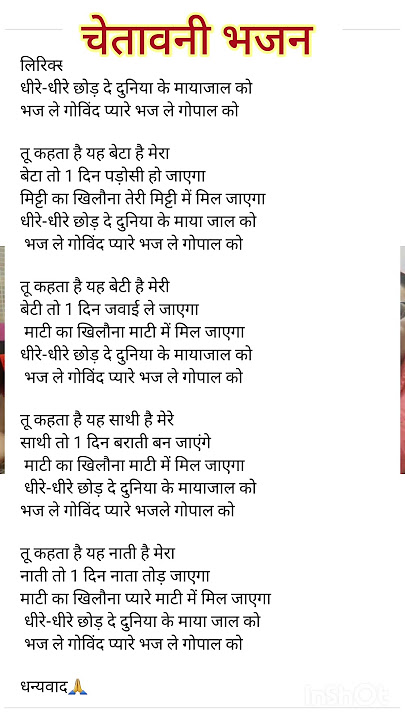 चेतावनी भजन
लिरिक्स
धीरे-धीरे छोड़ दे दुनिया के मायाजाल को
भज ले गोविंद प्यारे भज ले गोपाल को
तू कहता है यह बेटा है मेरा
बेटा तो 1 दिन पड़ोसी हो जाएगा
मिट्टी का खिलौना तेरी मिट्टी में मिल जाएगा
धीरे-धीरे छोड़ दे दुनिया के माया जाल को
भज ले गोविंद प्यारे भज ले गोपाल को
तू कहता है यह बेटी है मेरी
बेटी तो 1 दिन जवाई ले जाएगा
माटी का खिलौना माटी में मिल जाएगा
धीरे-धीरे छोड़ दे दुनिया के मायाजाल को
भज ले गोविंद प्यारे भज ले गोपाल को
तू कहता है यह साथी है मेरे
साथी तो 1 दिन बराती बन जाएंगे
माटी का खिलौना माटी में मिल जाएगा
धीरे-धीरे छोड़ दे दुनिया के मायाजाल को
भज ले गोविंद प्यारे भजले गोपाल को
तू कहता है यह नाती है मेरा
नाती तो 1 दिन नाता तोड़ जाएगा
माटी का खिलौना प्यारे माटी में मिल जाएगा
धीरे-धीरे छोड़ दे दुनिया के माया जाल को
भज ले गोविंद प्यारे भज ले गोपाल को
धन्यवाद🙏
InShOt